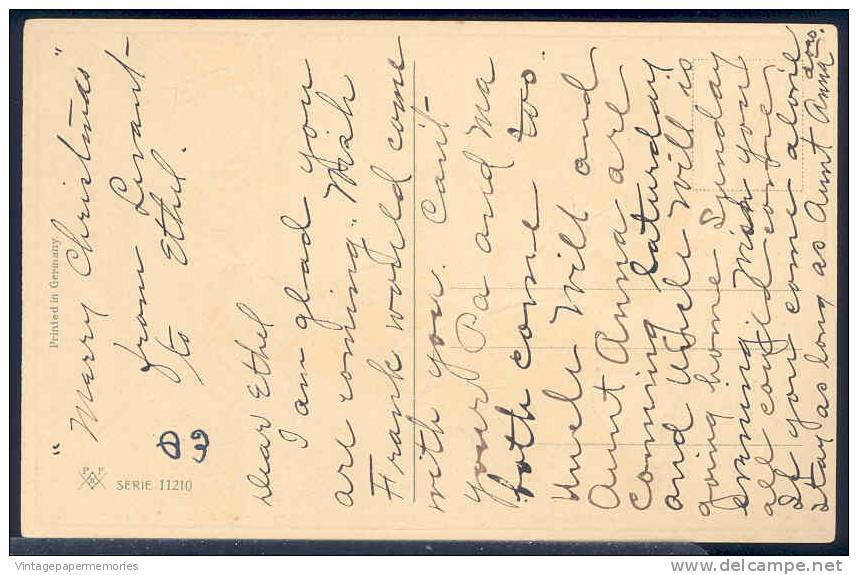 "Merry Christmas"
from Levant
to Ethel.
Dear Ethel
I am glad you
are coming. Wish
Frank would come
with you. Can't
your Pa and Ma
both come too.
Uncle Will and
Aunt Anna are
coming Saturday
and Uncle Will is
going home Sunday
evening Wish you
all could come,
If you come alone
stay as long as Aunt Anna
does.
Printed in Germany
P P
SERIE 11210
Vintagepapermemories
delcampe.net